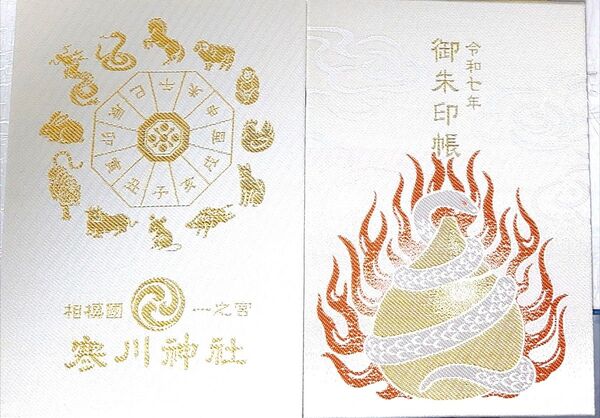 午
未
申
酉
戌
亥
子
丑
寅
卯
辰
巳
相模國 一之宮
寒川神社
令和七年
御朱印帳